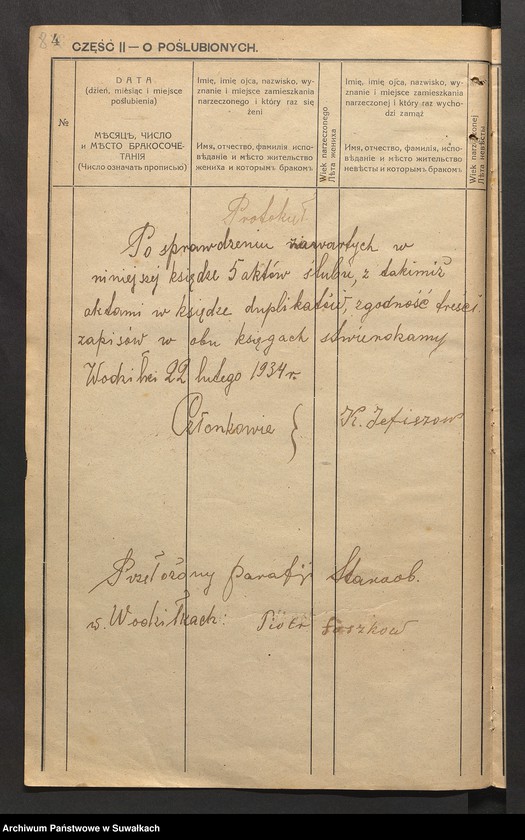 84
CZĘŚĆ II — O POŚLUBIONYCH.
№
DATA
(dzień, miesiąc i miejsce
poślubienia)
МѢСЯЦЪ, ЧИСЛО
и МѢСТО БРАКОСОЧЕ-
ТАНІЯ
(Число означать прописью)
Imię, imię ojca, nazwisko, wy-
znanie i miejsce zamieszkania
narzeczonego i który raz się
żeni
Имя, отчество, фамилія, испо-
вѣданіе и мѣсто жительство
жениха и которымъ бракомъ
Wiek narzeczonego
Лѣта жениха
Imię, imię ojca, nazwisko, wy-
znanie i miejsce zamieszkania
narzeczonej i który raz wycho-
dzi zamąż
Имя, отчество, фамилія, испо-
вѣданіе и мѣсто жительство
невѣсты и которымъ бракомъ
Wiek narzeczonej
Лѣта невѣсты
Protokuł
Po sprawdzeniu zawartych w
niniejszy księdze 5 aktów ślubu, z takimiż
aktami w księdze duplikatów, zgodność treści
zapisów w obu księgach stwierdzamy
Wodziłki 22 lutego 1934 r.
Członkowie { K. Jefiszow
Przełożony parafji Staroob.
w. Wodziłkach: Piotr Łaszkow
Archiwum Państwowe w Suwałkach